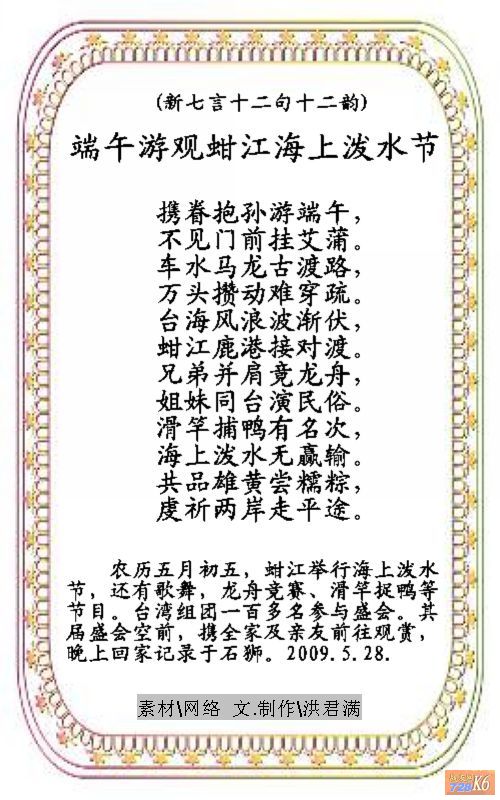 (新七言十二句十二韵)
端午游观蚶江海上泼水节
携眷抱孙游端午，
不见门前挂艾蒲。
车水马龙古渡路，
万头攒动难穿疏。
台海风浪波渐伏，
蚶江鹿港接对渡。
兄弟并肩竞龙舟，
姐妹同台演民俗。
滑竿捕鸭有名次，
海上泼水无赢输。
共品雄黄尝糯粽，
虔祈两岸走平途。
农历五月初五，蚶江举行海上泼水
节，还有歌舞，龙舟竞赛、滑竿捉鸭等
节目。台湾组团一百多名参与盛会。其
届盛会空前，携全家及亲友前往观赏，
晚上回家记录于石狮。2009.5.28.
素材\网络 文.制作\洪君满
728K6